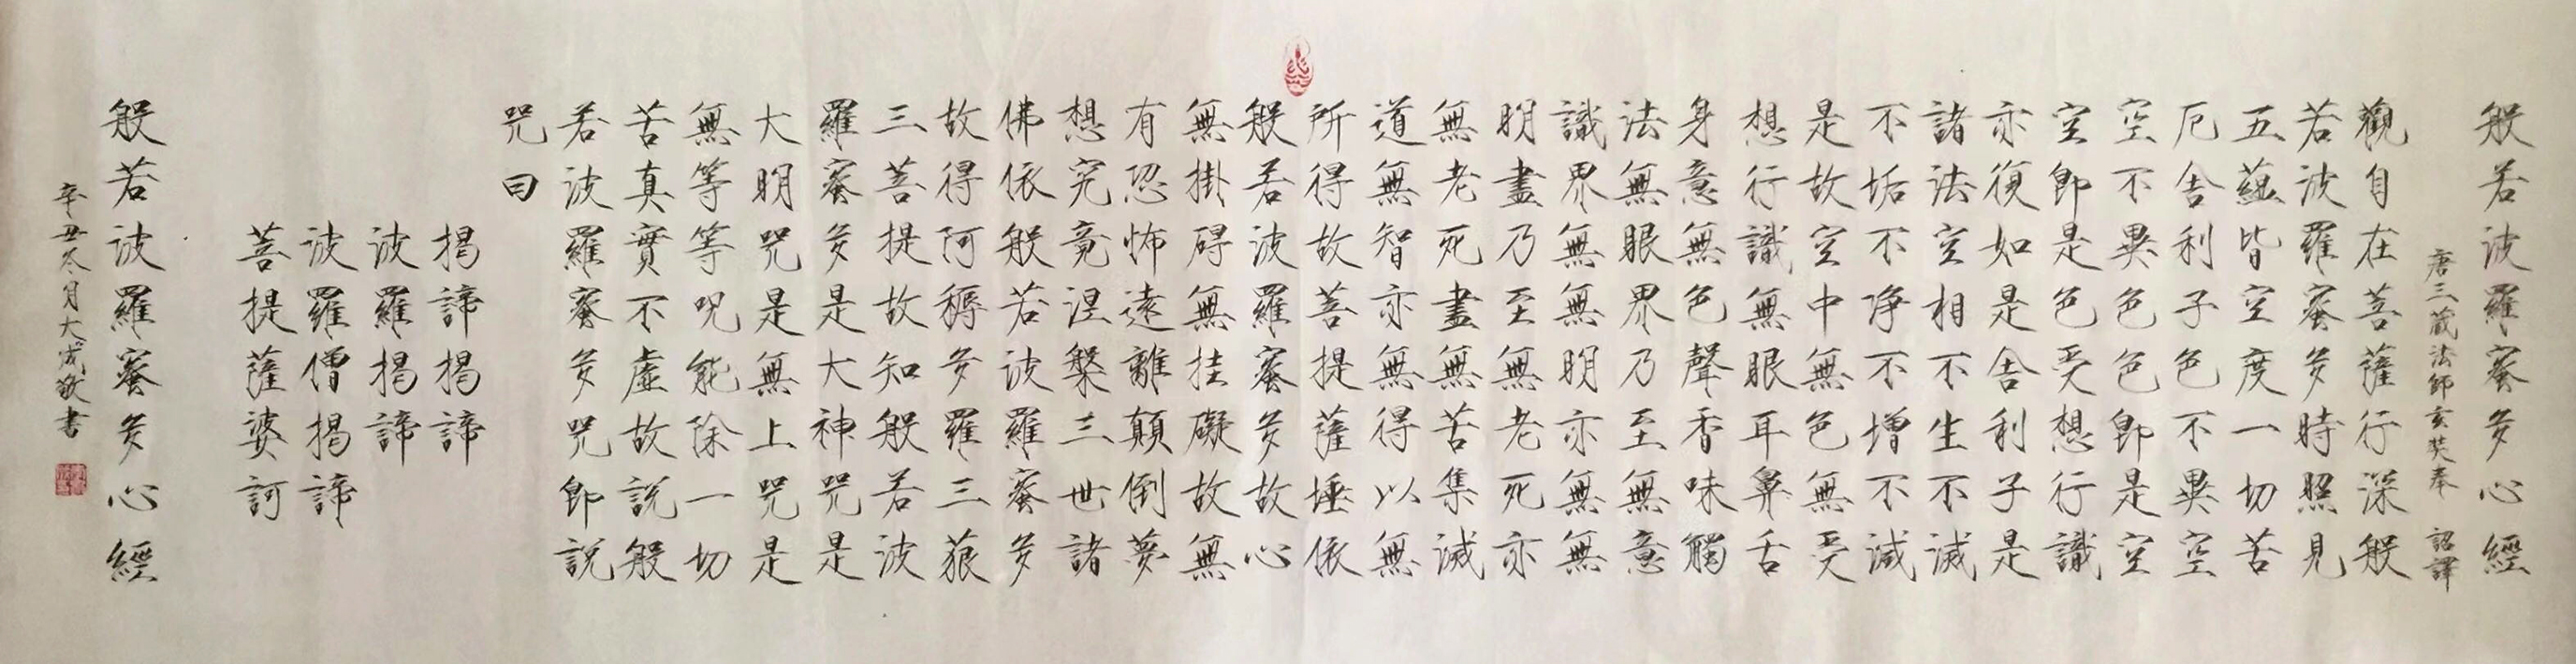 般若波羅蜜多心經
唐三藏法師玄奘奉 詔譯
觀自在菩薩行深般
若波羅蜜多時照見
五蘊皆空度一切苦
厄舍利子色不異空
空不異色色即是空
空即是色受想行識
亦復如是舍利子是
諸法空相不生不滅
不垢不净不增不減
是故空中無色無受
想行識無眼耳鼻舌
身意無色聲香味觸
法無眼界乃至無意
識界無無明亦無無
明盡乃至無老死亦
無老死盡無苦集滅
道無智亦無得以無
所得故菩提薩埵依
般若波羅蜜多故心
無掛碍無挂礙故無
有恐怖遠離顛倒夢
想究竟涅槃三世諸
佛依般若波羅蜜多
故得阿耨多羅三藐
三菩提故知般若波
羅蜜多是大神咒是
大明咒是無上咒是
無等等呪能除一切
苦真實不虛故說般
若波羅蜜多咒即說
咒曰
揭諦揭諦
波羅揭諦
波羅僧揭諦
菩提薩婆訶
般若波羅蜜多心經
辛丑冬月大成敬書